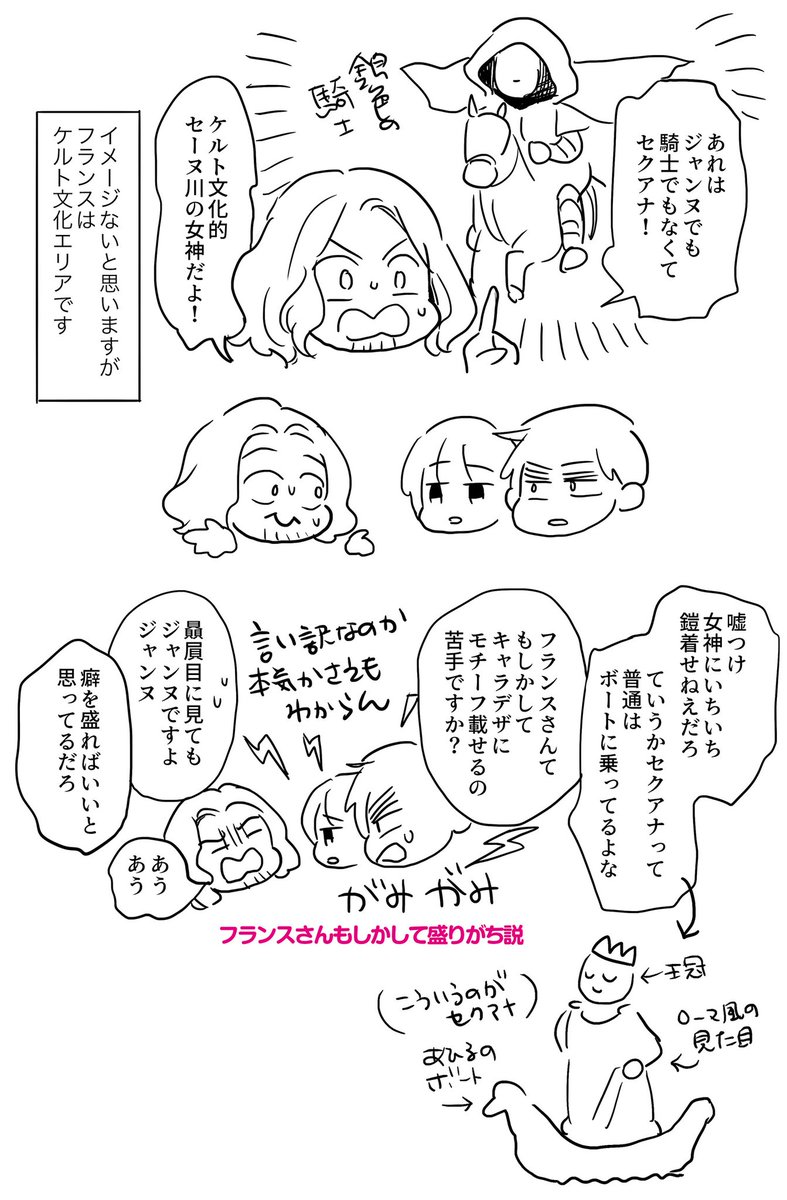 あれは
ジャンヌでも
騎士でもなくて
セクアナ!
銀色の
騎士
ケルト文化的
セーヌ川の女神だよ!
イメージないと思いますが
フランスは
ケルト文化エリアです
嘘つけ
女神にいちいち
鎧着せねえだろ
ていうかセクアナって
普通は
ボートに乗ってるよな
フランスさんて
もしかして
キャラデザに
モチーフ載せるの
苦手ですか?
言い訳なのか
本気かさえも
わからん
贔屓目に見ても
ジャンヌですよ
ジャンヌ
癖を盛ればいいと
思ってるだろ
あう
あう
がみ がみ
フランスさんもしかして盛りがち説
こういうのが
セクアナ
王冠
ローマ風の
見た目
あひるの
ボート